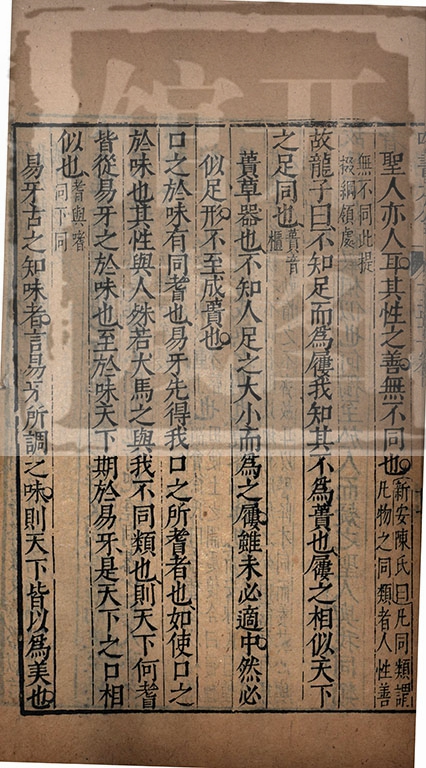 聖人亦人耳其性之善無不同也新安陳氏曰凡同類謂凡物之同類者人性善
無不同此提掇綱領處
故龍子曰不知足而爲屨我知其不爲蕢也屨之相似天下
之足同也蕢音櫃
蕢草器也不知人足之大小而爲之屨雖未必適中然必
似足形不至成蕢也
口之於味有同耆也易牙先得我口之所耆者也如使口之
於味也其性與人殊若犬馬之與我不同類也則天下何耆
皆從易牙之於味也至於味天下期於易牙是天下之口相
似也耆與嗜同下同
易牙古之知味者言易牙所調之味則天下皆以爲美也